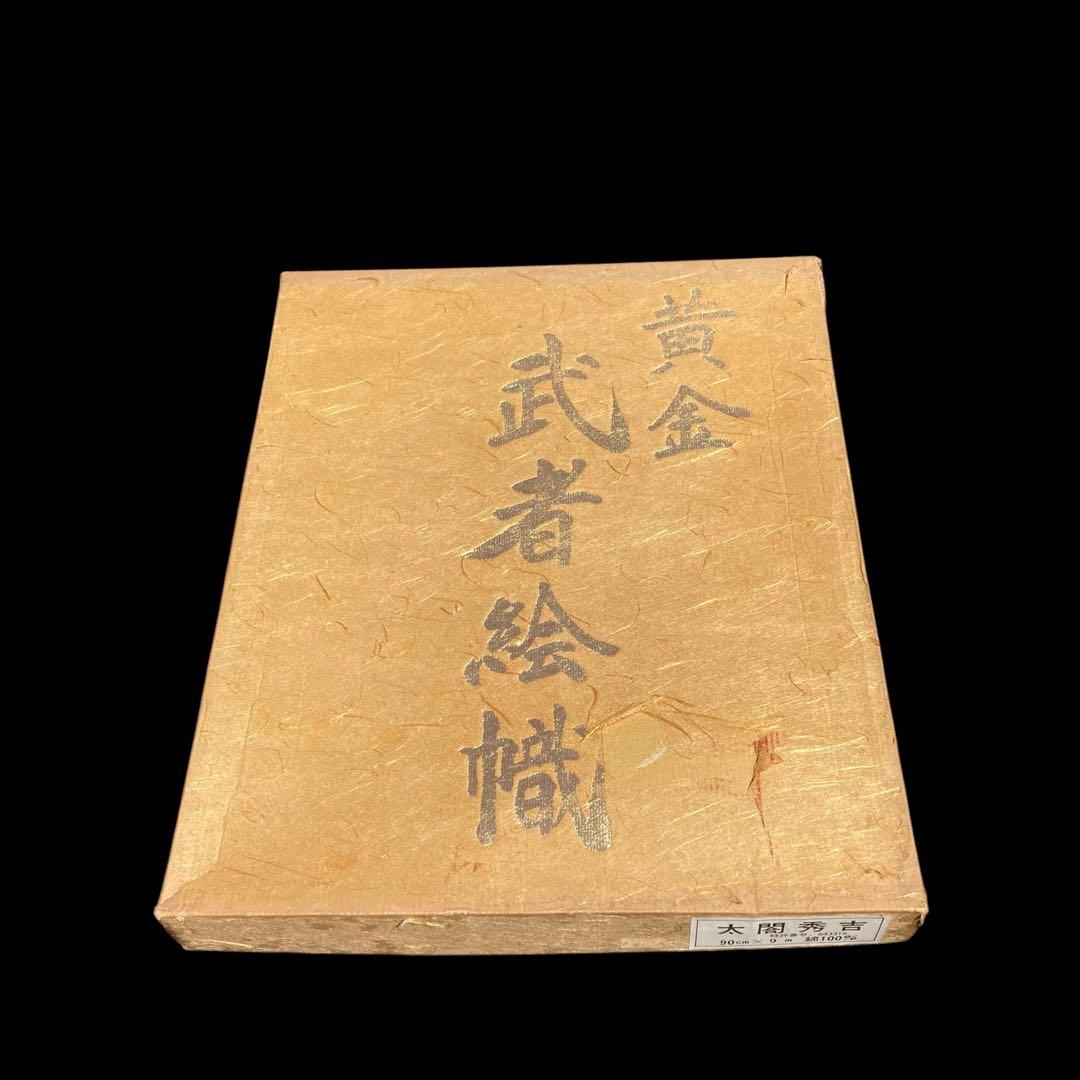 黄金
武者絵幟
太閤秀吉
特許番号 643316
90cm × 9m 綿100%